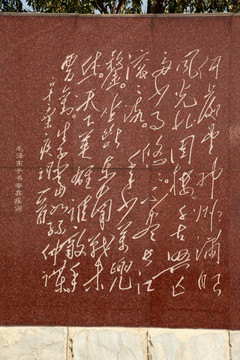 何处望神州满眼
风光北固楼千古兴亡
多少事悠悠不尽长江
滚滚流年少万兜
鍪坐断东南战未
休天下英雄谁敌手
曹刘生子当如孙仲谋
毛泽东手书辛弃疾词